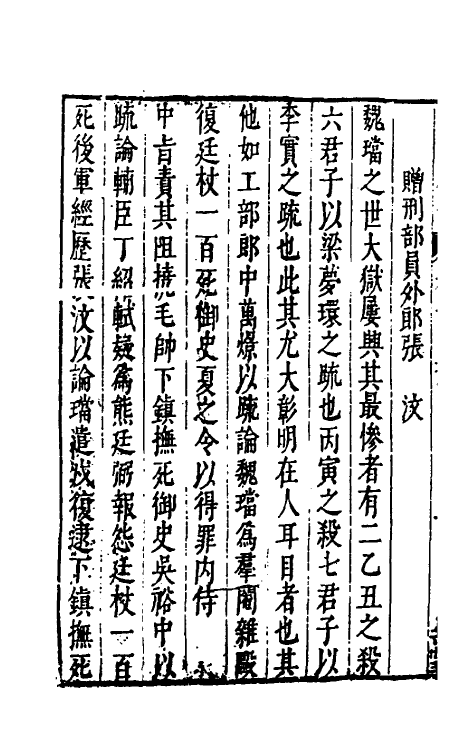 贈刑部員外郎張　汶
魏璫之世大獄屢興其最慘者有二乙丑之殺
六君子以梁夢環之疏也丙寅之殺七君子以
李實之疏也此其尤大彰明在人耳目者也其
他如工部郎中萬燝以疏論魏璫爲羣閹雜毆
復廷杖一百死御史夏之令以得罪內侍
中旨責其阻撓毛帥下鎮撫死御史吳裕中以
疏論輔臣丁紹軾疑爲熊廷弼報怨廷杖一百
死後軍經歷張汶以論璫遣戍復逮下鎮撫死